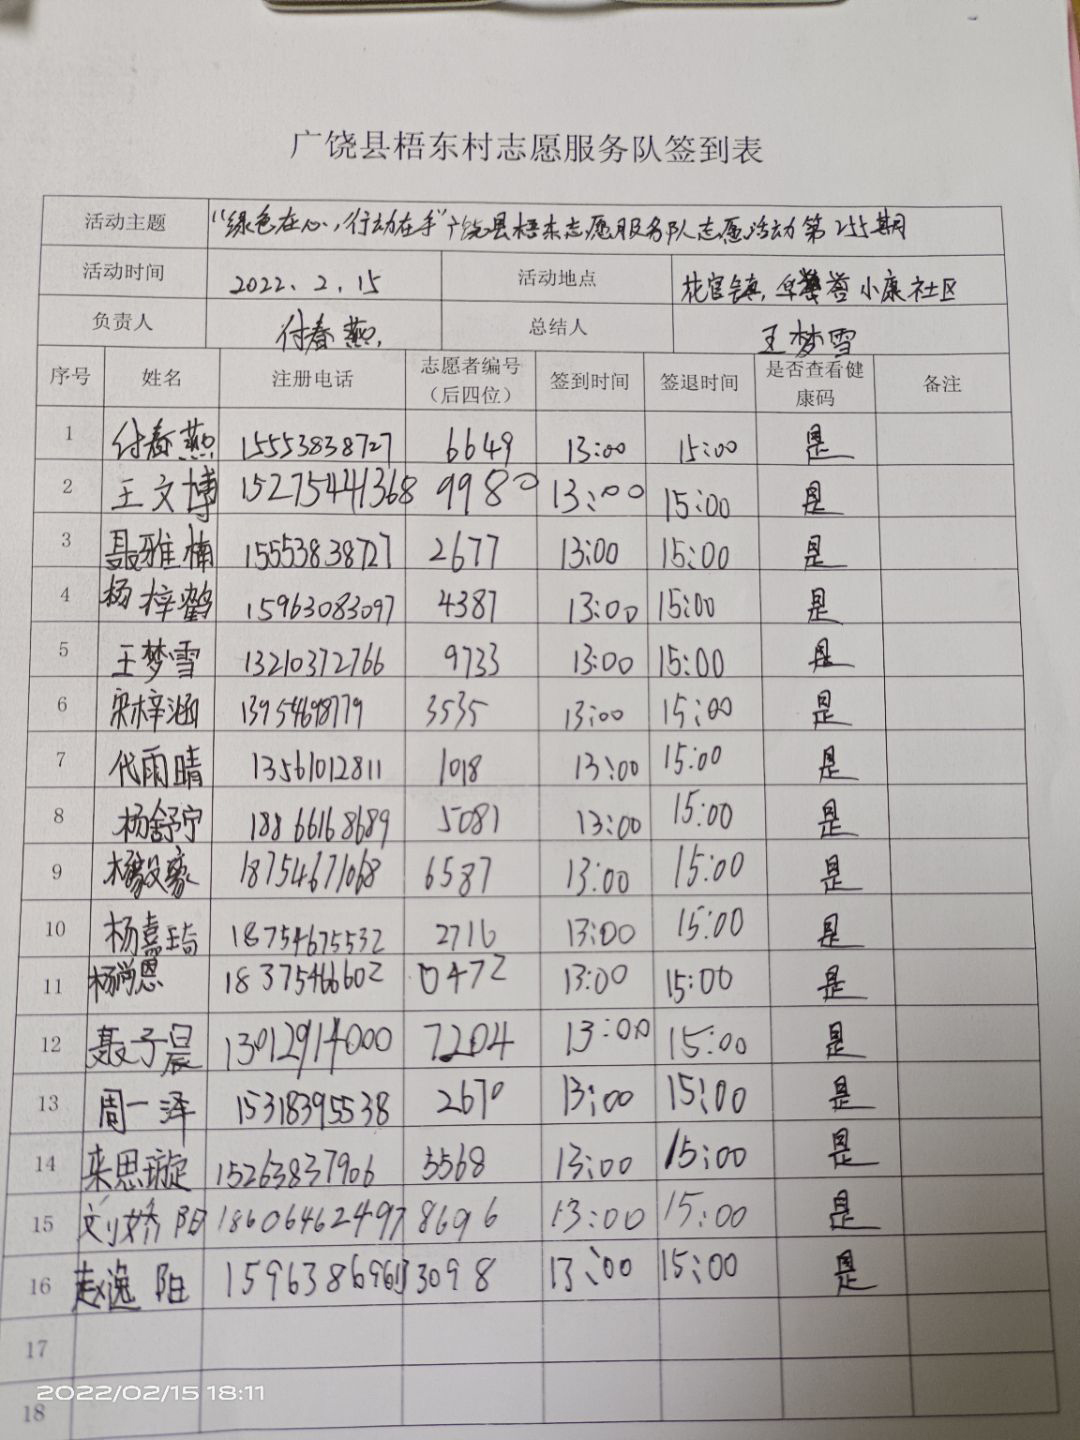 广饶县梧东村志愿服务队签到表
活动主题 “绿色在心，行动在手”广饶县梧东志愿服务队志愿活动第255期
活动时间 2022、2、15 活动地点 花官镇，小康社区
负责人 付春燕 总结人 王梦雪
序号 姓名 注册电话 志愿者编号（后四位） 签到时间 签退时间 是否查看健康码 备注
1 付春燕 15553838727 6649 13:00 15:00 是
2 王文博 15275441368 9980 13:00 15:00 是
3 聂雅楠 15553838727 2677 13:00 15:00 是
4 杨梓鹤 15963083097 4387 13:00 15:00 是
5 王梦雪 13210372766 9733 13:00 15:00 是
6 宋梓涵 13954698779 3535 13:00 15:00 是
7 代雨晴 13561012811 1018 13:00 15:00 是
8 杨舒宁 18866168689 5081 13:00 15:00 是
9 杨毅豪 18754671068 6587 13:00 15:00 是
10 杨嘉琦 18754675532 2716 13:00 15:00 是
11 杨尚恩 18375466602 0472 13:00 15:00 是
12 聂子晨 13012914000 7204 13:00 15:00 是
13 周一泽 15318395538 2670 13:00 15:00 是
14 来思璇 15263837906 3568 13:00 15:00 是
15 刘娇阳 18606462497 8696 13:00 15:00 是
16 赵逸阳 3098 13:00 15:00 是
17
18
2022/02/15 18:11